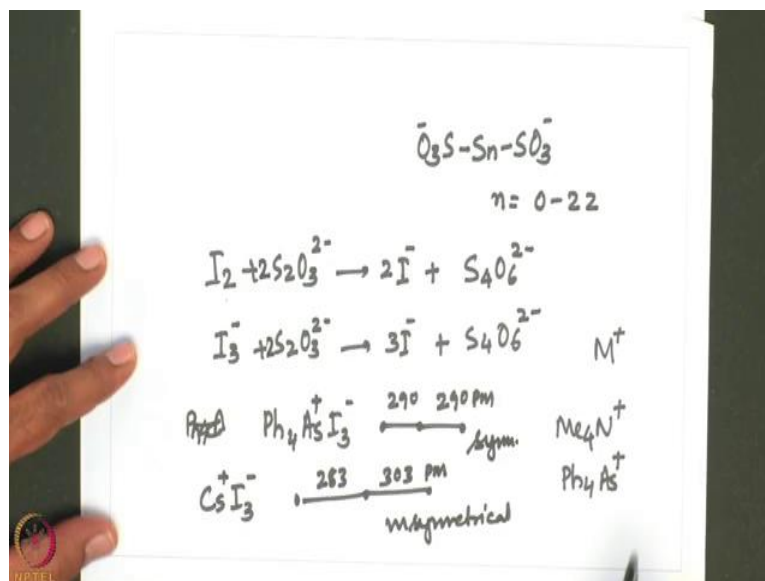 ⁻O₃S-Sn-SO₃⁻
n = 0-22
I₂ + 2S₂O₃²⁻ → 2I⁻ + S₄O₆²⁻
I₃⁻ + 2S₂O₃²⁻ → 3I⁻ + S₄O₆²⁻ M⁺
Ph₄As⁺I₃⁻ 290 290 PM symm. Me₄N⁺
Cs⁺I₃⁻ 283 303 PM unsymmetrical Ph₄As⁺
NPTEL